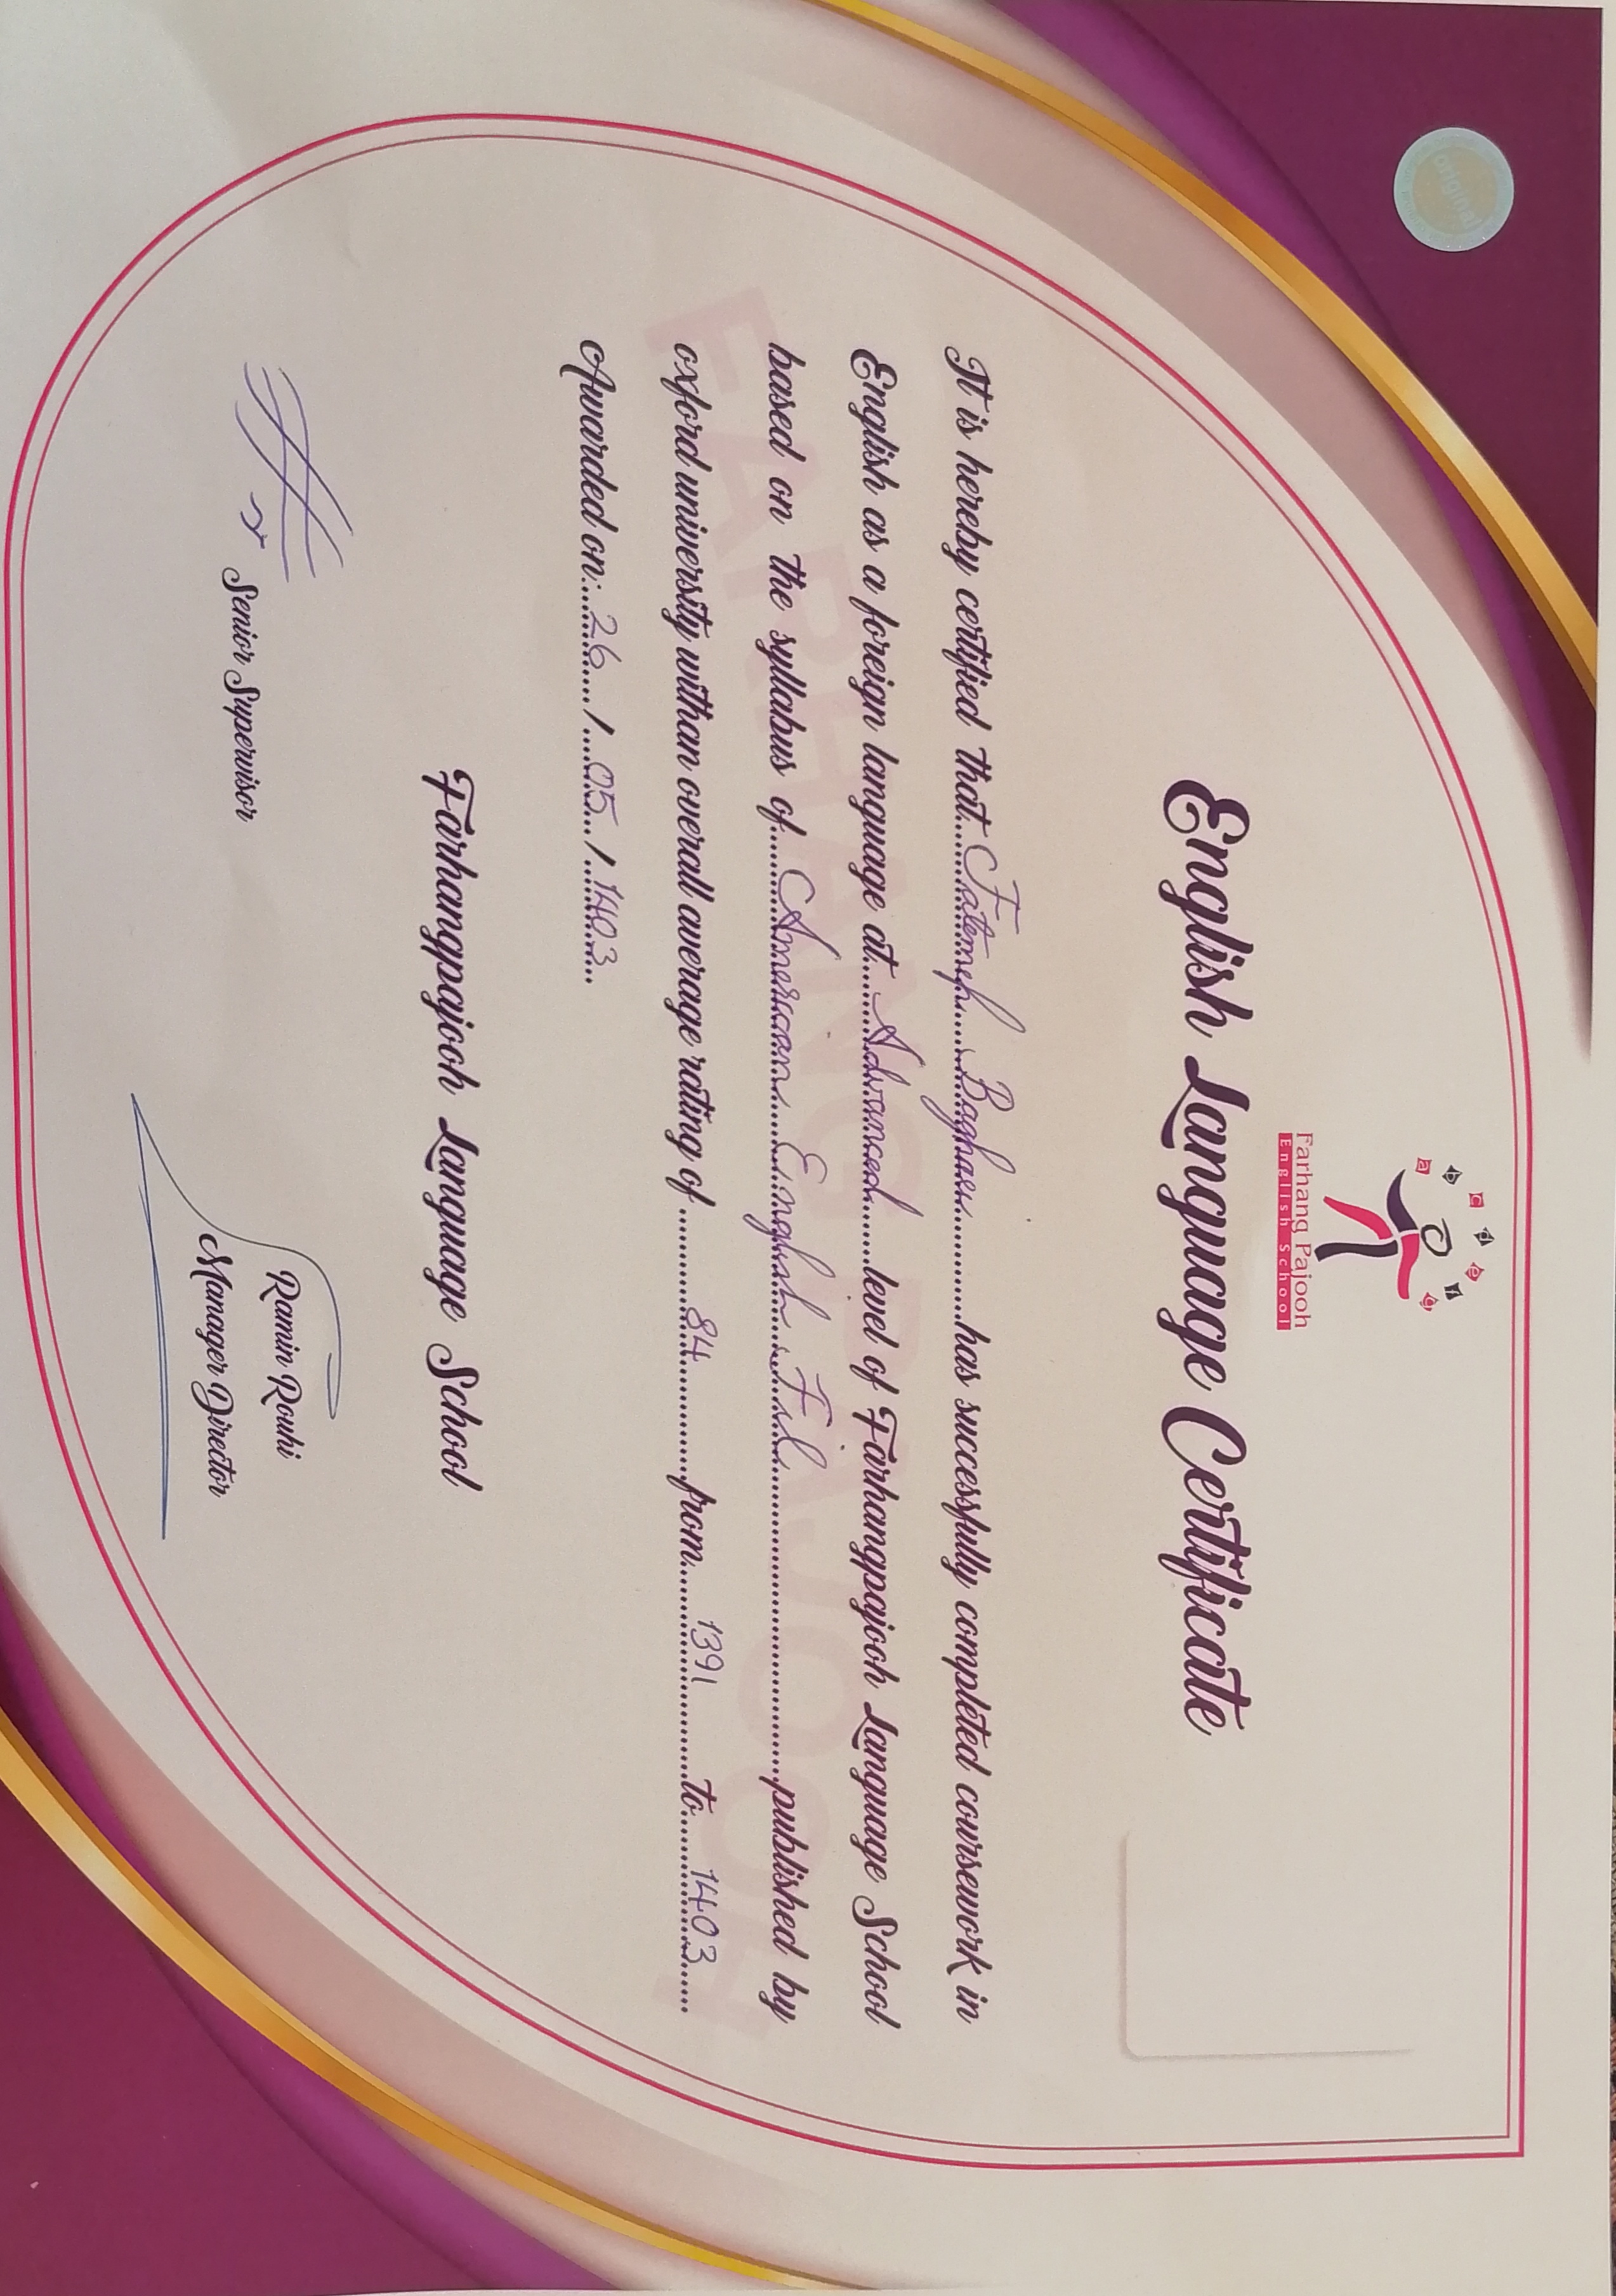 original
a b c d e f g
Farhang Pajooh
English School
English Language Certificate
It is hereby certified that......Fatemeh....Baghaei............has successfully completed coursework in
English as a foreign language at......Advanced......level of Farhangpajooh Language School
based on the syllabus of......American....English..File..............................published by
oxford university withan overall average rating of..........84..............from......1391..........to......1403......
Awarded on:....26..../....05.../...1403...
Farhangpajooh Language School
Senior Supervisor
Ramin Rouhi
Manager Director
FARHANG PAJOOH